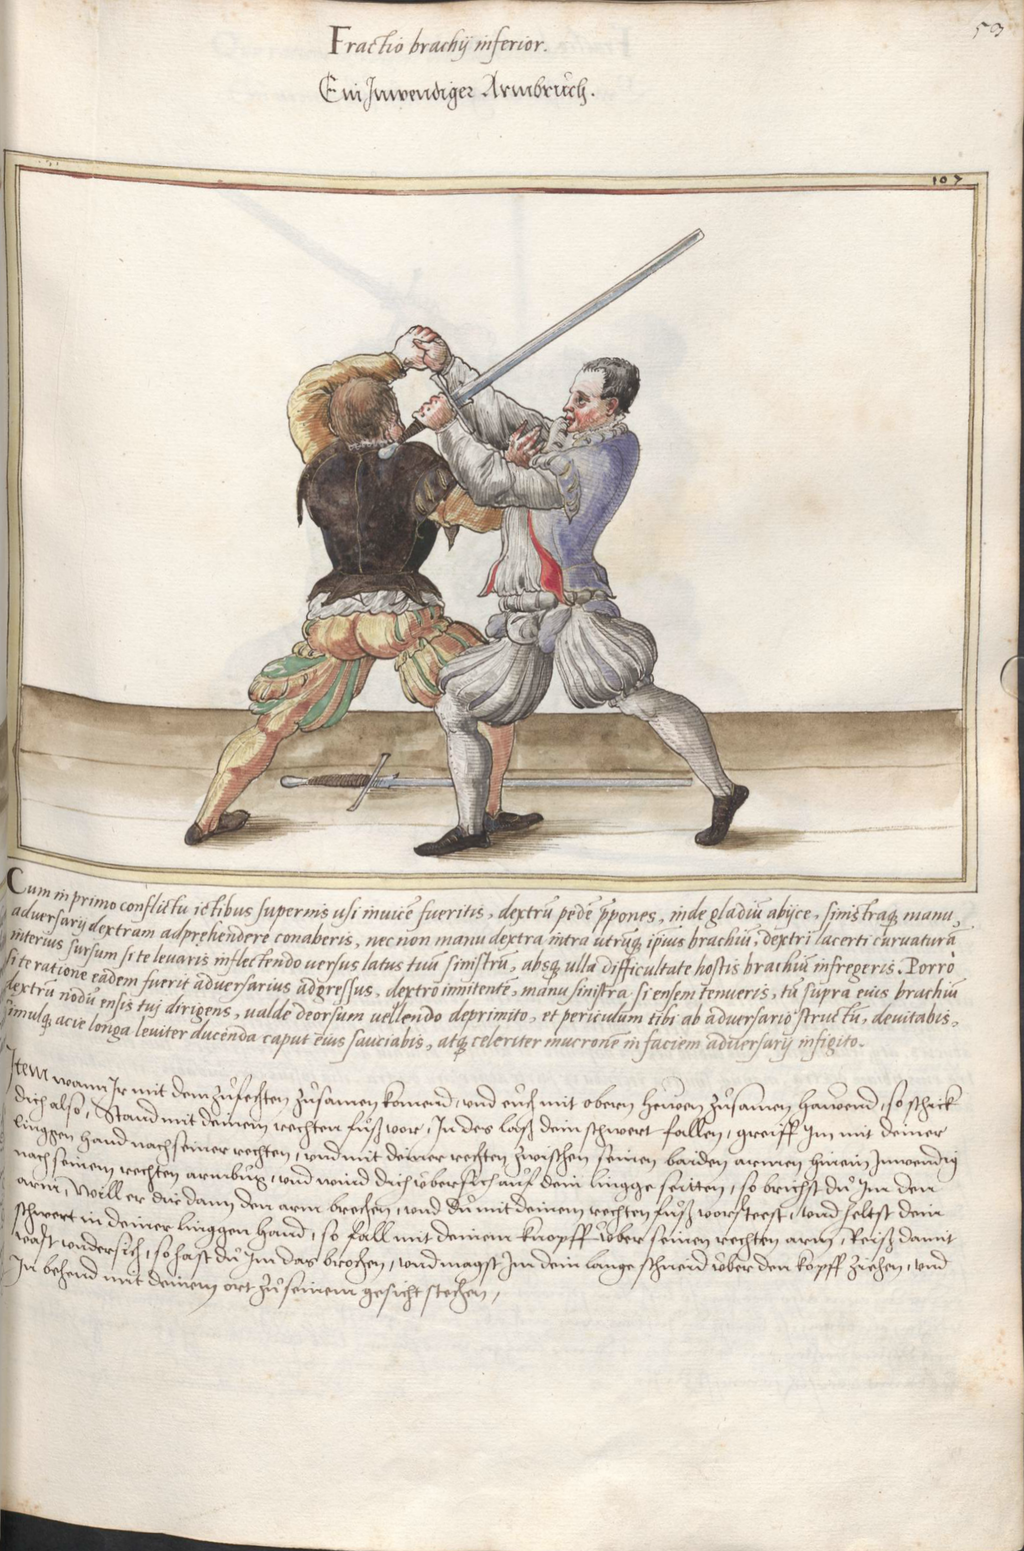 53
Fractio brachij inferior.
Ein Inwendiger Armbruch.
107
Cum in primo conflictu ictibus supernis usi inuicē fueritis, dextrū pedē ꝓpones, inde gladiū abijce, sinistraq; manu,
aduersarij dextram adprehendere conaberis, nec non manu dextra intra utrūq; ipsius brachiū, dextri lacerti curuaturā
interius sursum si te leuaris inflectendo uersus latus tuū sinistrū, absq; ulla difficultate hostis brachiū infregeris. Porrò
si te ratione eādem fuerit aduersarius adgressus, dextro innitente, manu sinistra si ensem tenueris, tū supra eius brachiū
dextrū nodū ensis tui dirigens, ualde deorsum uellendo deprimito, et periculum tibi ab aduersario structū, deuitabis,
simulq; acie longa leuiter ducenda caput eius sauciabis, atq; celeriter mucronē in faciem aduersarij infigito.
Item wann Ir mit dem zůfechten zůsamen komend, vnd eůch mit obern heuwen zůsamen hauwend, so schick
dich also, Stand mit deinem rechten fůß vor, In des laß dein schwert fallen, greiff Im mit deiner
linggen hand nach seiner rechten, vnd mit deiner rechten zwischen seinen baiden armen hinein Inwendig
nach seinem rechten armbůg, vnd wind dich vbersich auf dein lingge seitten, so brichst dů Im den
arm, Will er dir dann den arm brechen, vnd dů mit deinem rechten fůß vorsteest, vnd heltst dein
schwert in deiner linggen hand, so fall mit deinem knopff vber seinen rechten arm, Reiß damit
vast vndersich, so hast dů Im das brochen, vnd magst Im dein lange schneid vber den kopff ziehen, vnd
Im behend mit deinem ort zů seinem gesicht stechen,